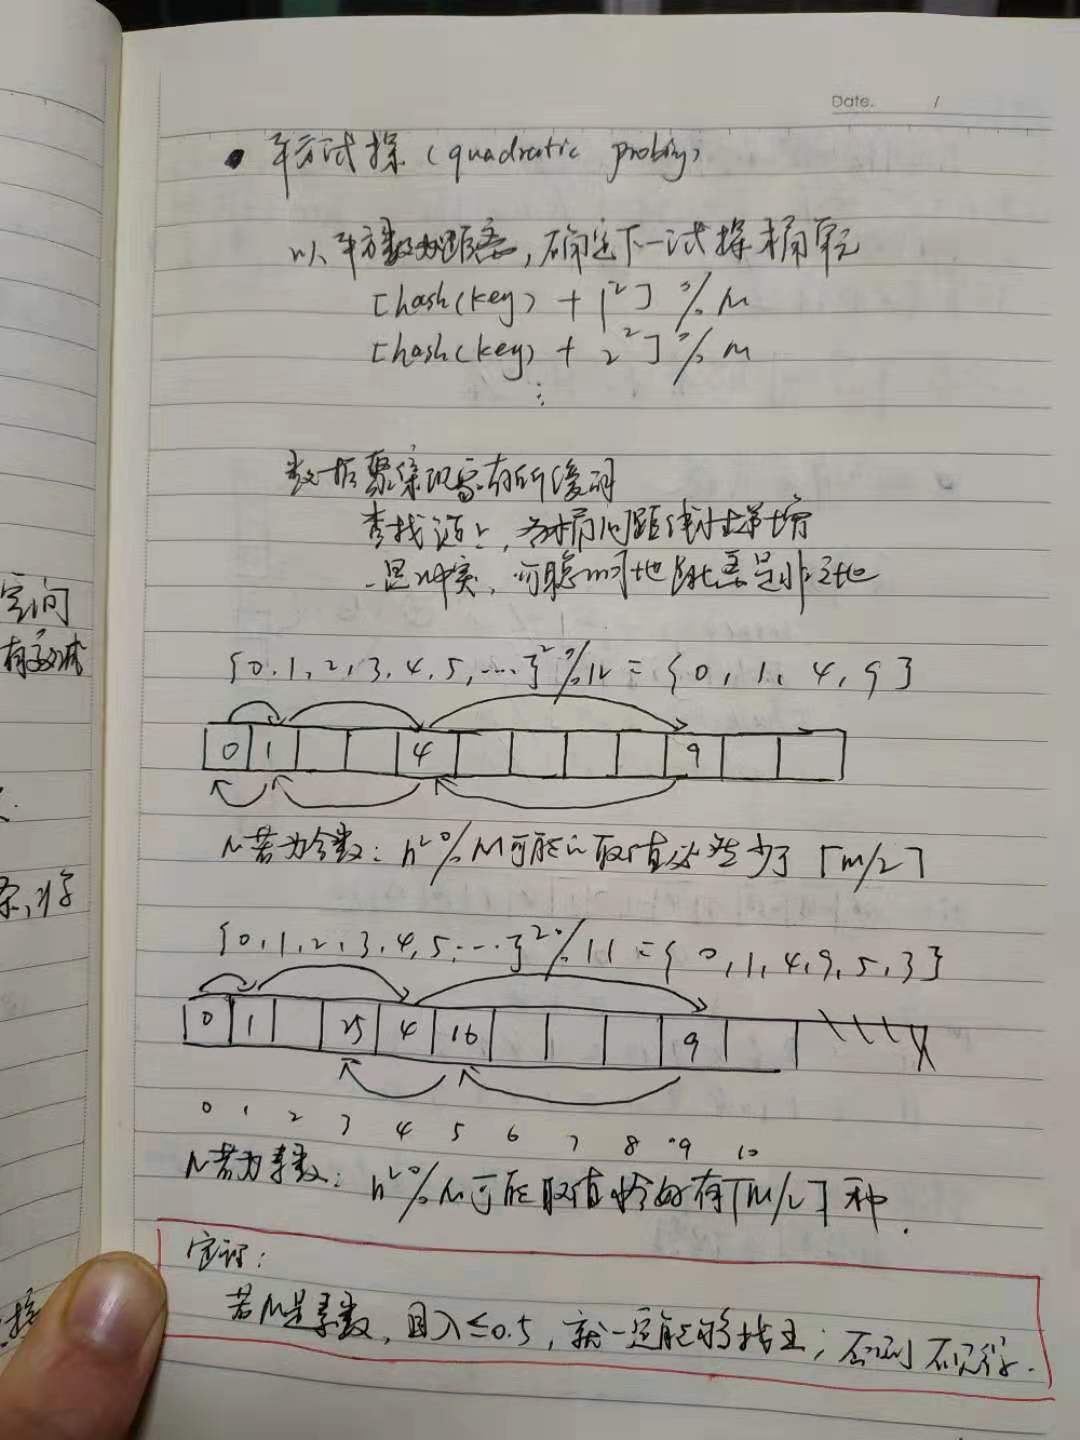 Date. /
• 平方试探 (quadratic probing)
以平方数为距离, 确定下一试探桶单元
[hash(key) + 1²] % M
[hash(key) + 2²] % M
⋮
数据聚集现象有所缓解
查找链上, 各桶间距线性递增
一旦冲突, 可聪明地跳离是非之地
{0, 1, 2, 3, 4, 5, ...}² % 12 = {0, 1, 4, 9}
0 1 4 9
M若为合数: n² % M可能的取值必然少于⌈M/2⌉
{0, 1, 2, 3, 4, 5, ...}² % 11 = {0, 1, 4, 9, 5, 3}
0 1 25 4 16 9
0 1 2 3 4 5 6 7 8 9 10
M若为素数: n² % M可能取值恰好有⌈M/2⌉种.
定理:
若M是素数, 且λ≤0.5, 就一定能够找到; 否则不见得.
空间
有
条, 将